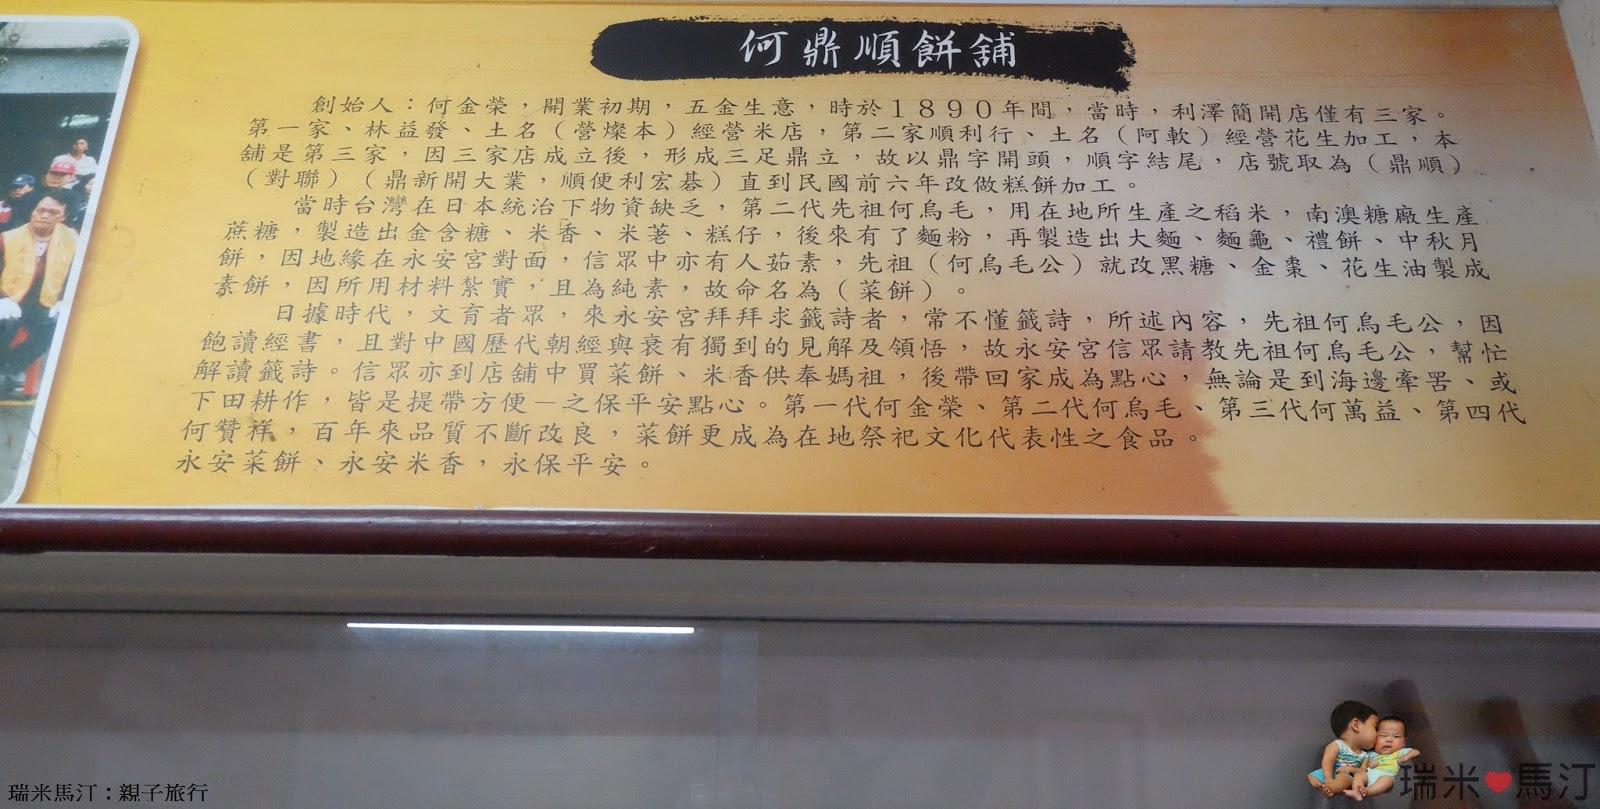 何鼎順餅舖
創始人：何金榮，開業初期，五金生意，時於１８９０年間，當時，利澤簡開店僅有三家。
第一家、林益發、土名（營燦本）經營米店，第二家順利行、土名（阿軟）經營花生加工，本
舖是第三家，因三家店成立後，形成三足鼎立，故以鼎字開頭，順字結尾，店號取為（鼎順）
（對聯）（鼎新開大業，順便利宏碁）直到民國前六年改做糕餅加工。
當時台灣在日本統治下物資缺乏，第二代先祖何烏毛，用在地所生產之稻米，南澳糖廠生產
蔗糖，製造出金含糖、米香、米荖、糕仔，後來有了麵粉，再製造出大麵、麵龜、禮餅、中秋月
餅，因地緣在永安宮對面，信眾中亦有人茹素，先祖（何烏毛公）就改黑糖、金棗、花生油製成
素餅，因所用材料紮實，且為純素，故命名為（菜餅）。
日據時代，文盲者眾，來永安宮拜拜求籤詩者，常不懂籤詩，所述內容，先祖何烏毛公，因
飽讀經書，且對中國歷代朝經與衰有獨到的見解及領悟，故永安宮信眾請教先祖何烏毛公，幫忙
解讀籤詩。信眾亦到店舖中買菜餅、米香供奉媽祖，後帶回家成為點心，無論是到海邊牽罟、或
下田耕作，皆是提帶方便－之保平安點心。第一代何金榮、第二代何烏毛、第三代何萬益、第四代
何贊祥，百年來品質不斷改良，菜餅更成為在地祭祀文化代表性之食品。
永安菜餅、永安米香，永保平安。
瑞米馬汀：親子旅行
瑞米♥馬汀